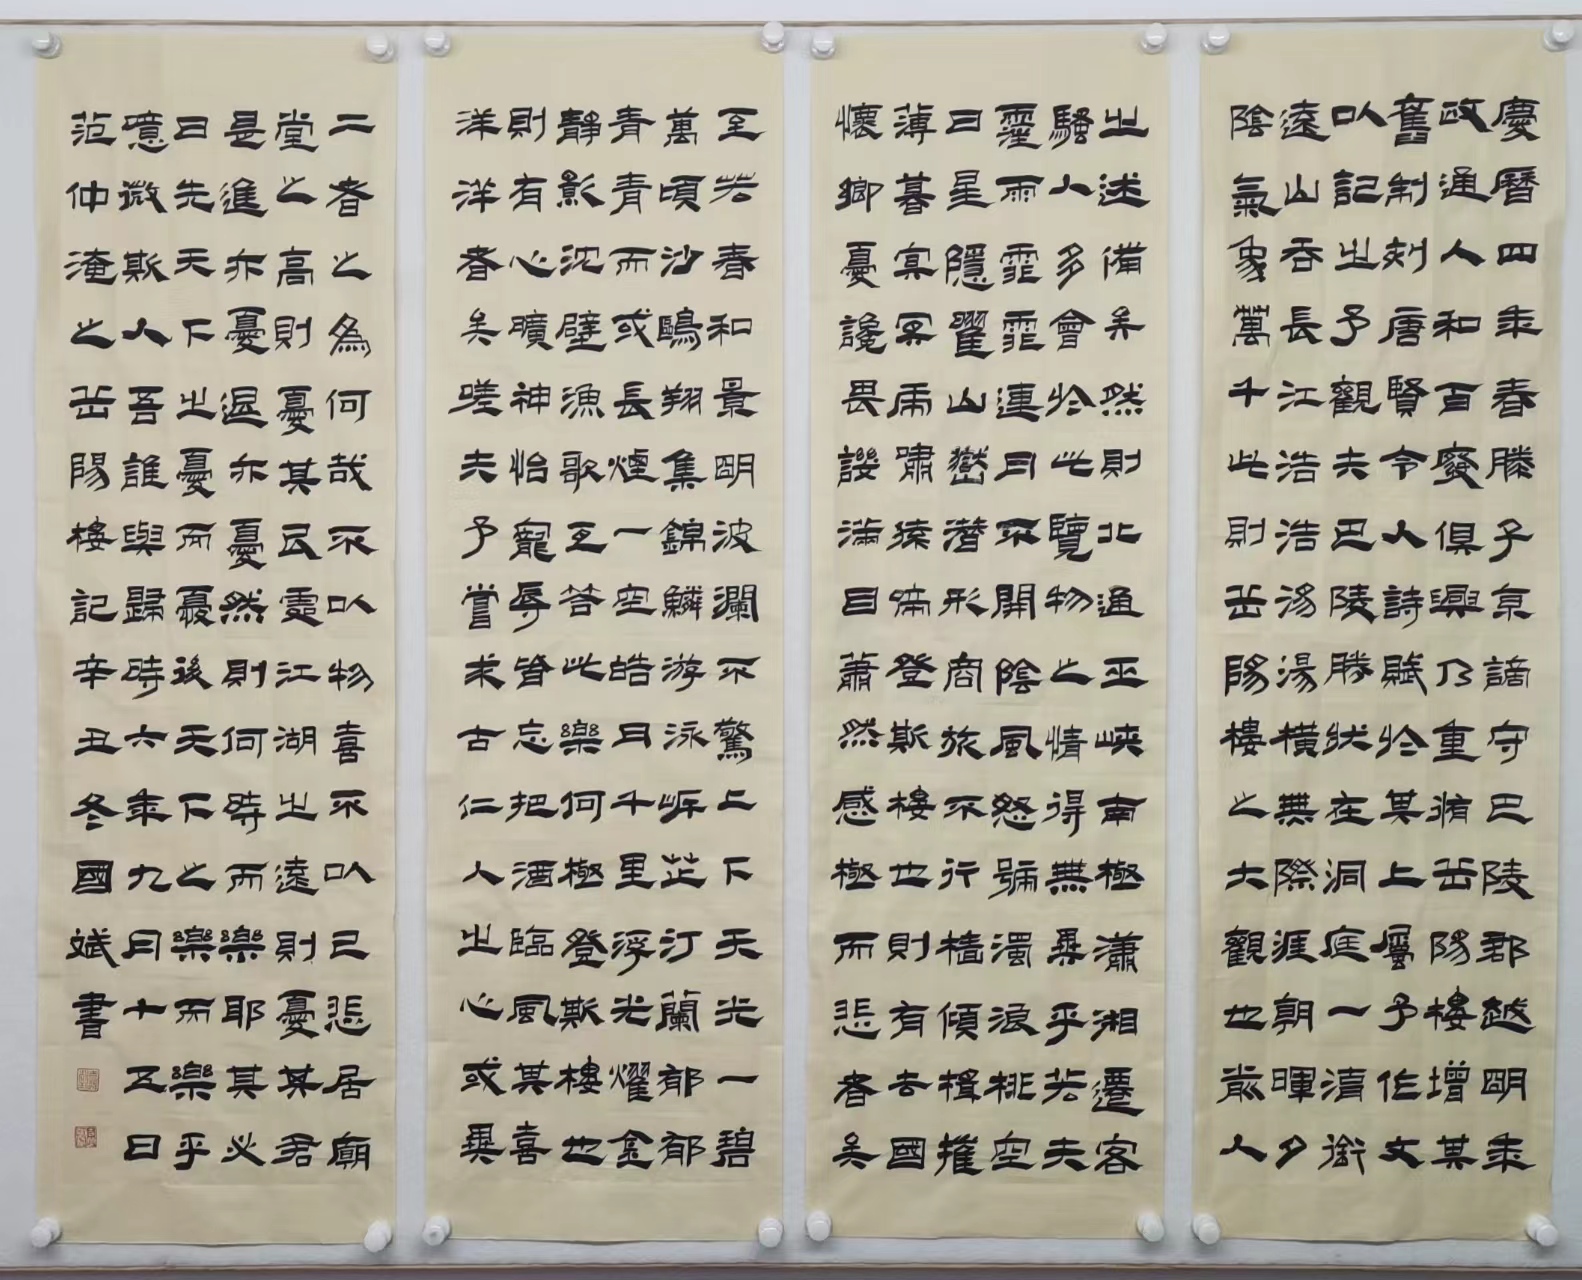 慶曆四年春滕子京謫守巴陵郡越明年
政通人和百廢俱興乃重脩岳陽樓增其
舊制刻唐賢令人詩賦於其上屬予作文
以記之予觀夫巴陵勝狀在洞庭一湖銜
遠山吞長江浩浩湯湯橫無際涯朝暉夕
陰氣象萬千此則岳陽樓之大觀也前人
之述備矣然則北通巫峽南極瀟湘遷客
騷人多會於此覽物之情得無異乎若夫
霪雨霏霏連月不開陰風怒號濁浪排空
日星隱曜山嶽潛形商旅不行檣傾楫摧
薄暮冥冥虎嘯猿啼登斯樓也則有去國
懷鄉憂讒畏譏滿目蕭然感極而悲者矣
至若春和景明波瀾不驚上下天光一碧
萬頃沙鷗翔集錦鱗游泳岸芷汀蘭郁郁
青青而或長煙一空皓月千里浮光耀金
靜影沈璧漁歌互答此樂何極登斯樓也
則有心曠神怡寵辱皆忘把酒臨風其喜
洋洋者矣嗟夫予嘗求古仁人之心或異
二者之為何哉不以物喜不以己悲居廟
堂之高則憂其民處江湖之遠則憂其君
是進亦憂退亦憂然則何時而樂耶其必
曰先天下之憂而憂後天下之樂而樂乎
噫微斯人吾誰與歸時六年九月十五日
范仲淹之岳陽樓記辛丑冬國斌書